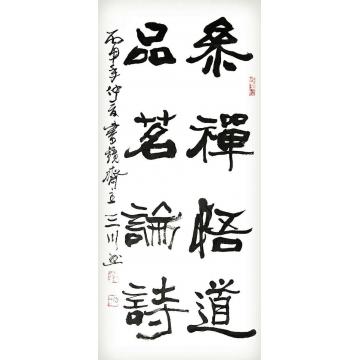 参禪悟道
品茗論詩
丙申年仲夏書於鏡齋主三川